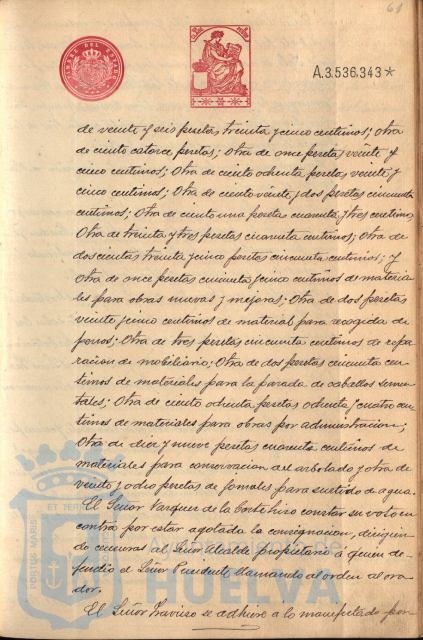 61
TIMBRE DEL ESTADO
A.3.536.343*
de veinte y seis pesetas treinta y cinco centimos; Otra
de ciento catorce pesetas; Otra de once pesetas veinte y
cinco centimos; Otra de ciento ochenta pesetas veinte y
cinco centimos; Otra de ciento veinte y dos pesetas cincuenta
centimos; Otra de ciento una pesetas cuarenta y tres centimos
Otra de treinta y tres pesetas cincuenta centimos; Otra de
doscientas treinta y cinco pesetas cincuenta centimos; y
otra de once pesetas cincuenta y cinco centimos de materia-
les para obras nuevas y mejoras; Otra de dos pesetas
veinte y cinco centimos de material para recogida de
perros; Otra de tres pesetas cincuenta centimos de repa-
racion de mobiliario; Otra de dos pesetas cincuenta cen-
timos de materiales para la parada de caballos semen-
tales; Otra de ciento ochenta pesetas ochenta y cuatro cen-
timos de materiales para obras por administracion;
Otra de diez y nueve pesetas cuarenta centimos de
materiales para conservacion del arbolado y otra de
veinte y ocho pesetas de jornales para surtido de agua.
El Señor Vazquez de la Corte hizo constar su voto en
contra por estar agotada la consignacion, dirigien-
do censuras al Señor Alcalde propietario á quien de-
fendio el Señor Presidente llamando al orden al ora-
dor.
El Señor Traviso se adhiere a lo manifestado por
PORTUS MARIS ET TERRAE
HUELVA